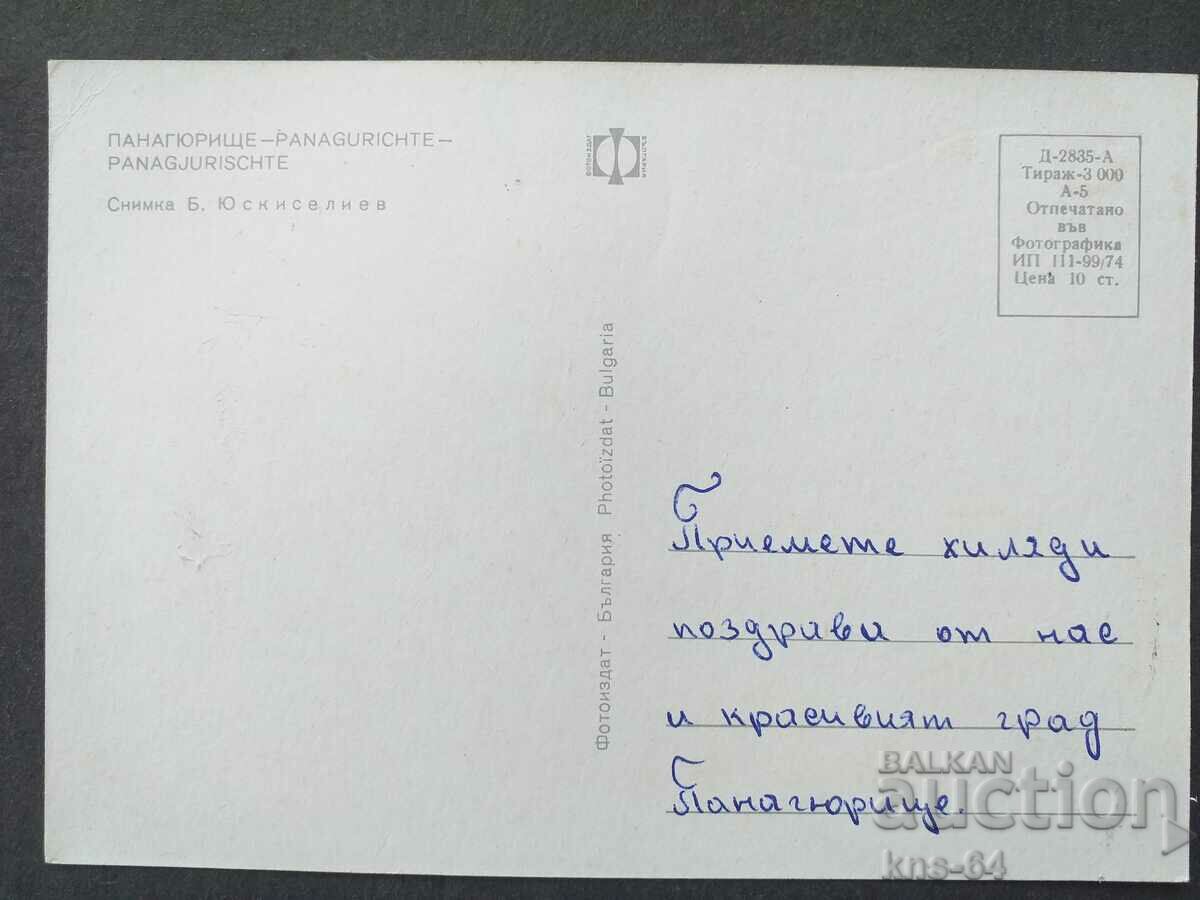 ПАНАГЮРИЩЕ – PANAGURICHTE –
PANAGJURISCHTE
Снимка Б. Юскиселиев
Д-2835-А
Тираж-3 000
А-5
Отпечатано
във
Фотографика
ИП 111-99/74
Цена 10 ст.
Фотоиздат - България Photoïzdat - Bulgaria
Приемете хиляди
поздрави от нас
и красивият град
Панагюрище.
BALKAN
auction
kns-64